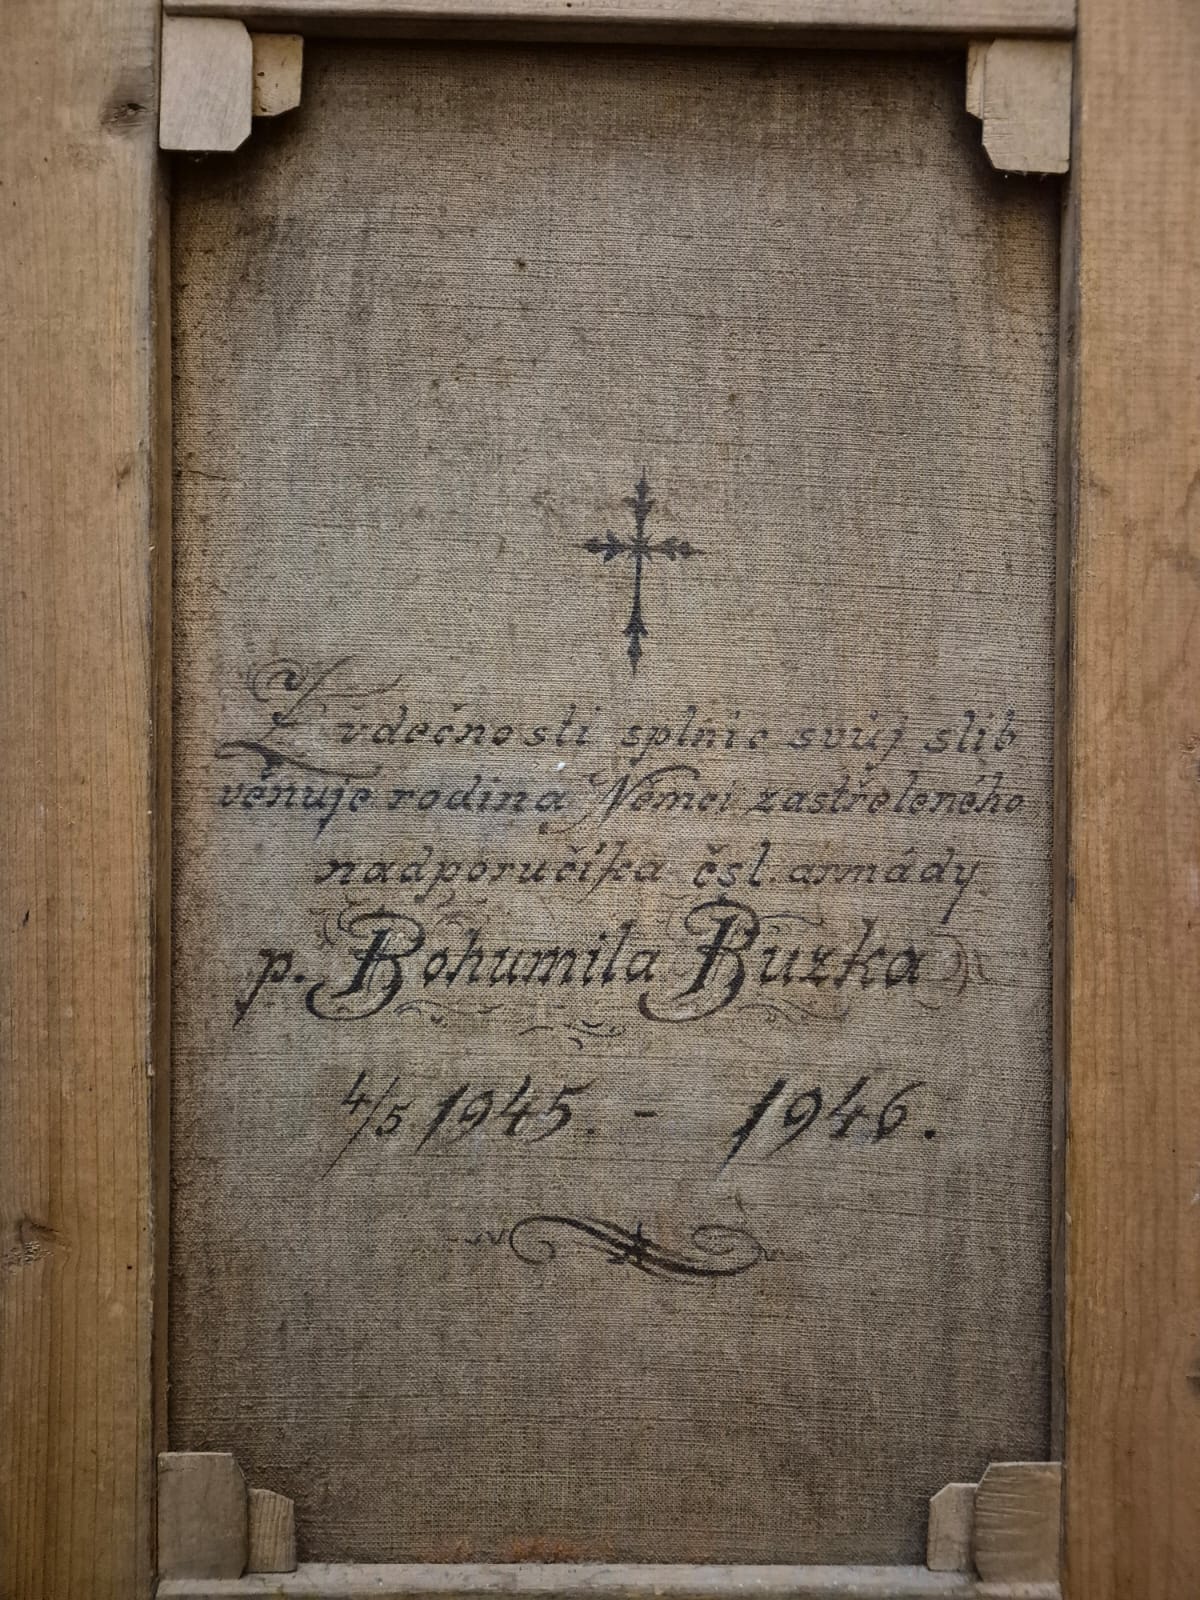 Z vdečnosti splnic svůj slib
věnuje rodina Němci zastřeleného
nadporučíka čsl. armády
p. Bohumila Buzka
4/5 1945. - 1946.